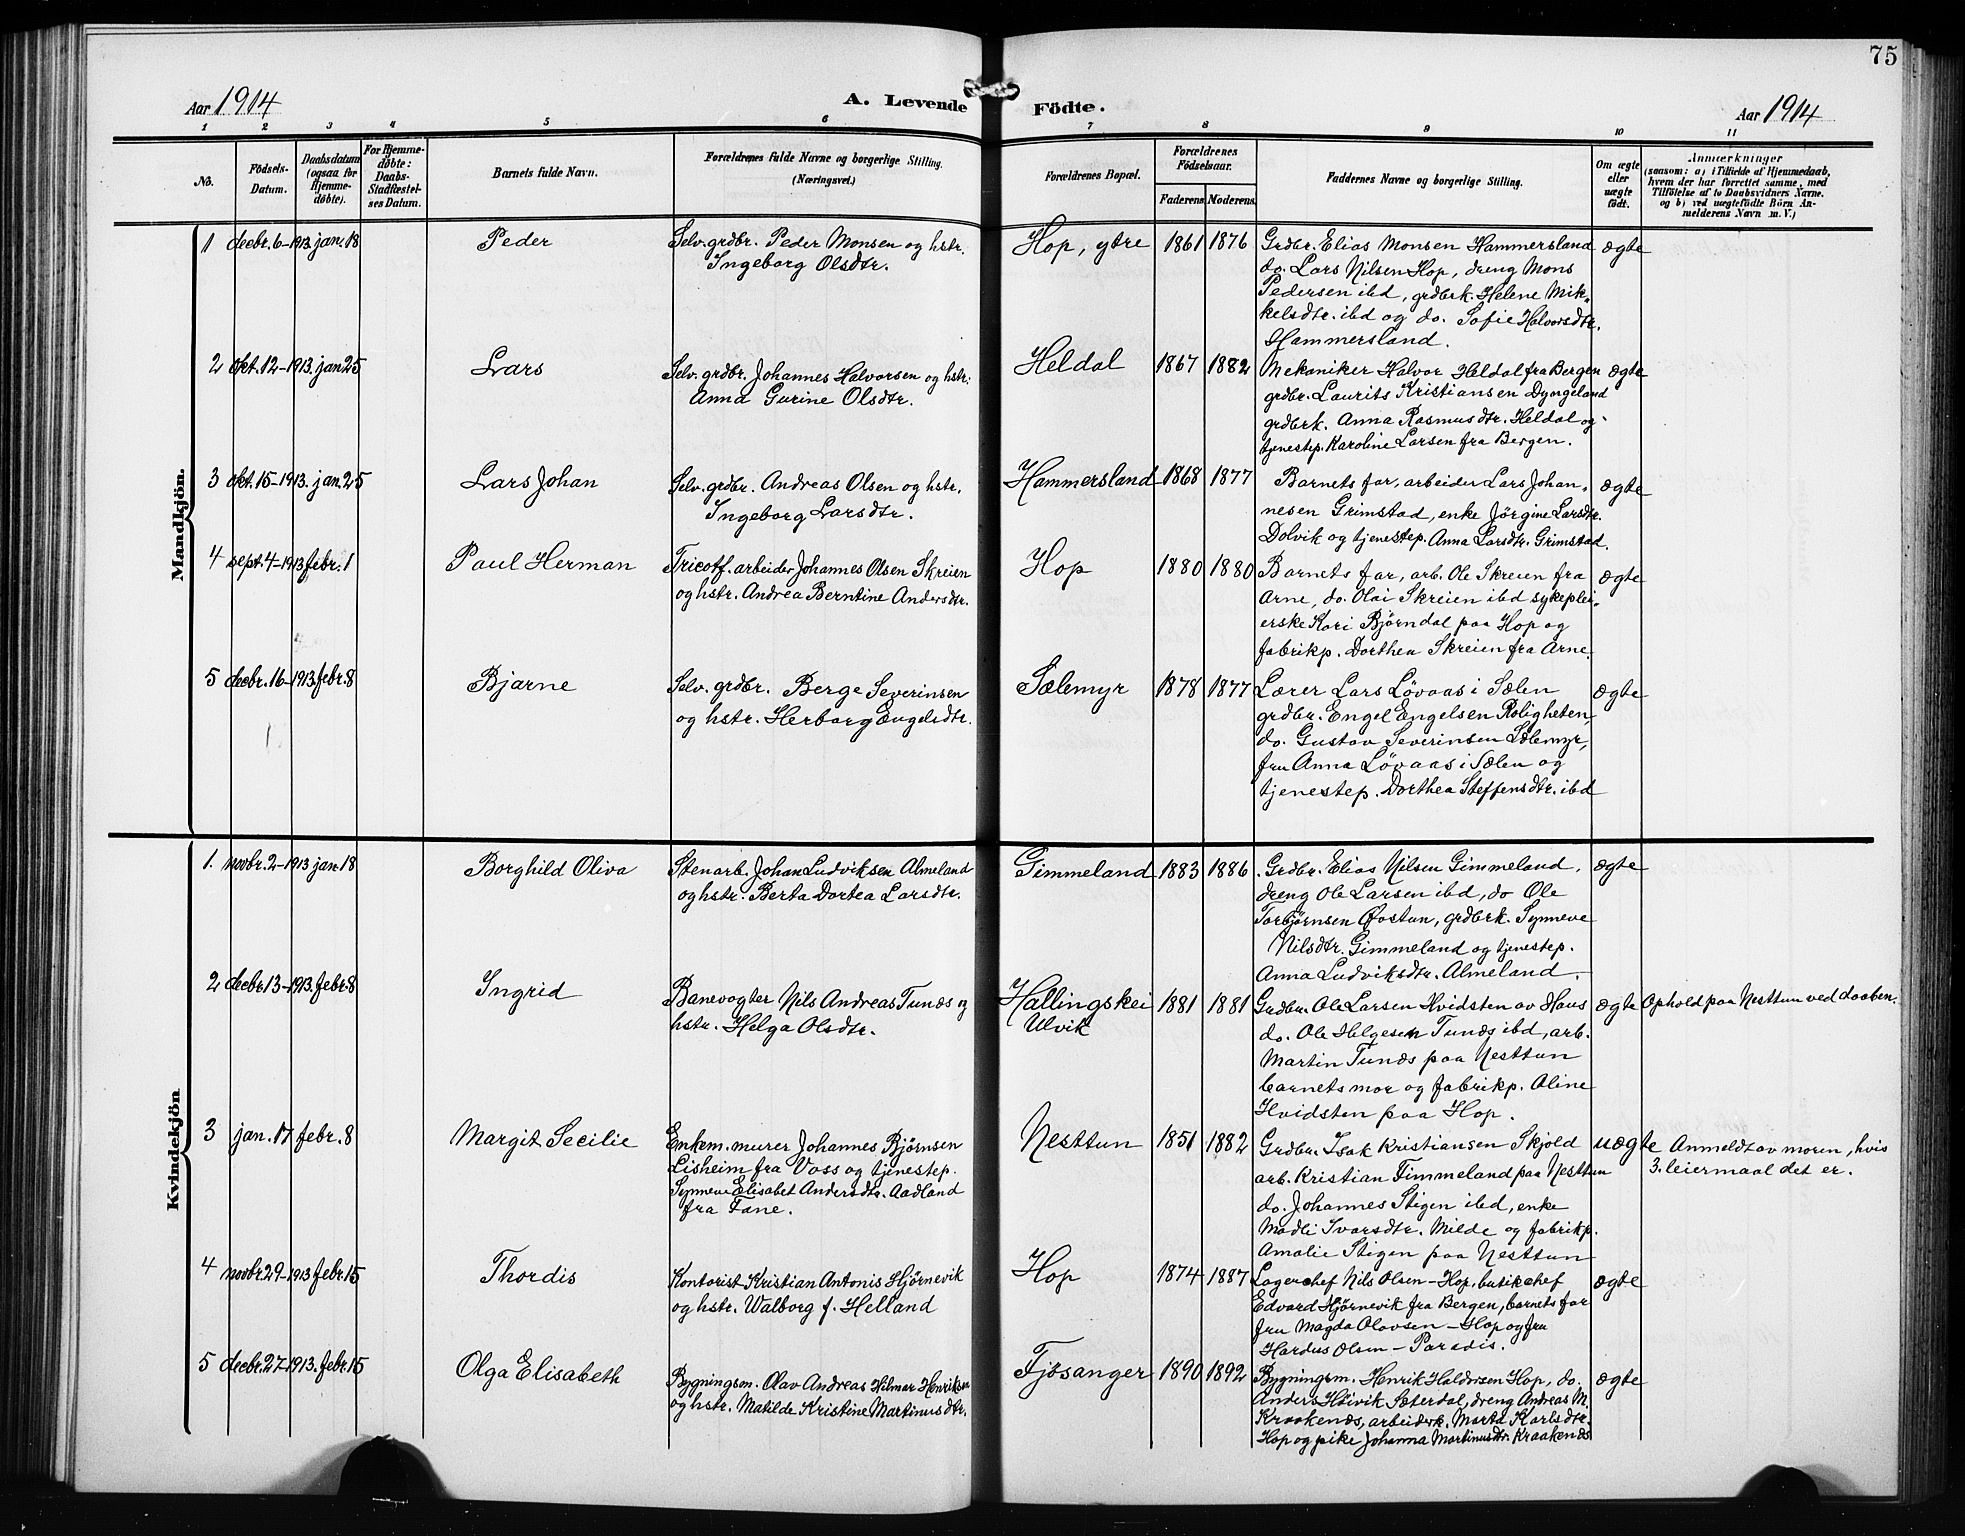 75
Aar 1914
A. Levende Födte.
Aar 1914
1 2 3 4 5 6 7 8 9 10 11
No.
Födsels-
Datum.
Daabsdatum
(ogsaa for
Hjemme-
døbte).
For Hjemme-
døbte:
Daabs-
Stadfæstel-
ses Datum.
Barnets fulde Navn.
Forældrenes fulde Navne og borgerlige Stilling.
(Næringsvei.)
Forældrenes Bopæl.
Forældrenes
Fødselsaar.
Faderens. Moderens.
Faddernes Navne og borgerlige Stilling.
Om ægte
eller
uægte
født.
Anmærkninger
(saasom: a) i Tilfælde af Hjemmedaab,
hvem der har forrettet samme, med
Tilföielse af to Daabsvidners Navne.
og b) ved uægtefödte Börn An-
melderens Navn m. V.)
Mandkjön.
1 decbr. 6-1913 jan. 18
Peder
Selv. grdbr. Peder Monsen og hstr.
Ingeborg Olsdtr.
Hop, ytre
1861 1876
Grdbr. Elias Monsen Hammersland
do. Lars Nilsen Hop, dreng Mons
Pedersen ibd, grdbrk. Helene Mik-
kelsdtr. ibd og do. Sofie Halvorsdtr.
Hammersland.
ægte
2 okt. 12-1913. jan 25
Lars
Selv. grdbr. Johannes Halvorsen og hstr.
Anna Gurine Olsdtr.
Heldal
1867 1882
Mekaniker Halvor Heldal fra Bergen
grdbr. Laurits Kristiansen Dyngeland
grdbrk. Anna Rasmusdtr. Heldal og
tjenestep. Karoline Larsen fra Bergen.
ægte
3 okt. 15-1913. jan. 25
Lars Johan
Selv. grdbr. Andreas Olsen og hstr.
Ingeborg Larsdtr.
Hammersland
1868 1877
Barnets far, arbeider Lars Johan-
nesen Grimstad, enke Jörgine Larsdtr.
Dolvik og tjenestep. Anna Larsdtr. Grimstad.
ægte
4 sept. 4-1913 febr. 1
Paul Herman
Tricotf. arbeider Johannes Olsen Skreien
og hstr. Andrea Berntine Andersdtr.
Hop
1880 1880
Barnets far, arb. Ole Skreien fra
Arne, do. Olai Skreien ibd sykeplei-
erske Kari Bjørndal paa Hop og
fabrikp. Dorthea Skreien fra Arne.
ægte
5 decbr. 16-1913. febr. 8
Bjarne
Selv. grdbr. Berge Severinsen
og hstr. Herborg Engelsdtr.
Sælemyr
1878 1877
Lærer Lars Løvaas i Sælen
grdbr. Engel Engelsen Roligheten,
do. Gustav Severinsen Sælemyr,
fru Anna Løvaas i Sælen og
tjenestep. Dorthea Steffensdtr. ibd
ægte
Kvindekjön
1. novbr. 2-1913 jan. 18
Borghild Oliva
Stenarb. Johan Ludviksen Almeland
og hstr. Berta Dortea Larsdtr.
Gimmeland
1883 1886
Grdbr. Elias Nilsen Gimmeland,
dreng Ole Larsen ibd, do Ole
Torbjørnsen Øvstun, grdbrk. Synneve
Nilsdtr. Gimmeland og tjenestep.
Anna Ludviksdtr. Almeland.
ægte
2 decbr. 13-1913. febr. 8
Ingrid
Banevogter Nils Andreas Tunæs og
hstr. Helga Olsdtr.
Hallingskei
Ulvik
1881 1881
Grdbr. Ole Larsen Hvidsten av Haus
do. Ole Helgesen Tunæs ibd, arb.
Martin Tunæs paa Nesttun
barnets mor og fabrikp. Aline
Hvidsten paa Hop.
ægte
Ophold paa Nesttun ved daaben.
3 jan. 17 febr. 8
Margit Secilie
Enkem. murer Johannes Bjørnsen
Lisheim fra Voss og tjenestep.
Synneve Elisabet Andersdtr. Aadland
fra Fane.
Nesttun
1851 1882
Grdbr. Isak Kristiansen Skjold
arb. Kristian Timmeland paa Nesttun
do. Johannes Stigen ibd, enke
Madli Ivarsdtr. Milde og fabrikp.
Amalie Stigen paa Nesttun
uægte
Anmeldt av moren, hvis
3. leiermaal det er.
4 novbr. 29-1913 febr. 15
Thordis
Kontorist Kristian Antonis Hjørnevik
og hstr. Walborg f. Helland
Hop
1874 1887
Lagerchef Nils Olsen - Hop, butikchef
Edvard Hjørnevik fra Bergen, barnets far
fru Magda Olavsen - Hop og fru
Hardus Olsen - Paradis.
ægte
5 decbr. 27-1913. febr. 15
Olga Elisabeth
Bygningsm. Olav Andreas Hilmar Henriksen
og hstr. Matilde Kristine Martinusdtr.
Fjösanger
1890 1892
Bygningsm. Henrik Haldorsen Hop, do.
Anders Høivik Sæterdal, dreng Andreas M.
Kraakenæs, arbeiderk. Marta Karlsdtr.
Hop og pike Johanna Martinusdtr. Kraakenæs
ægte